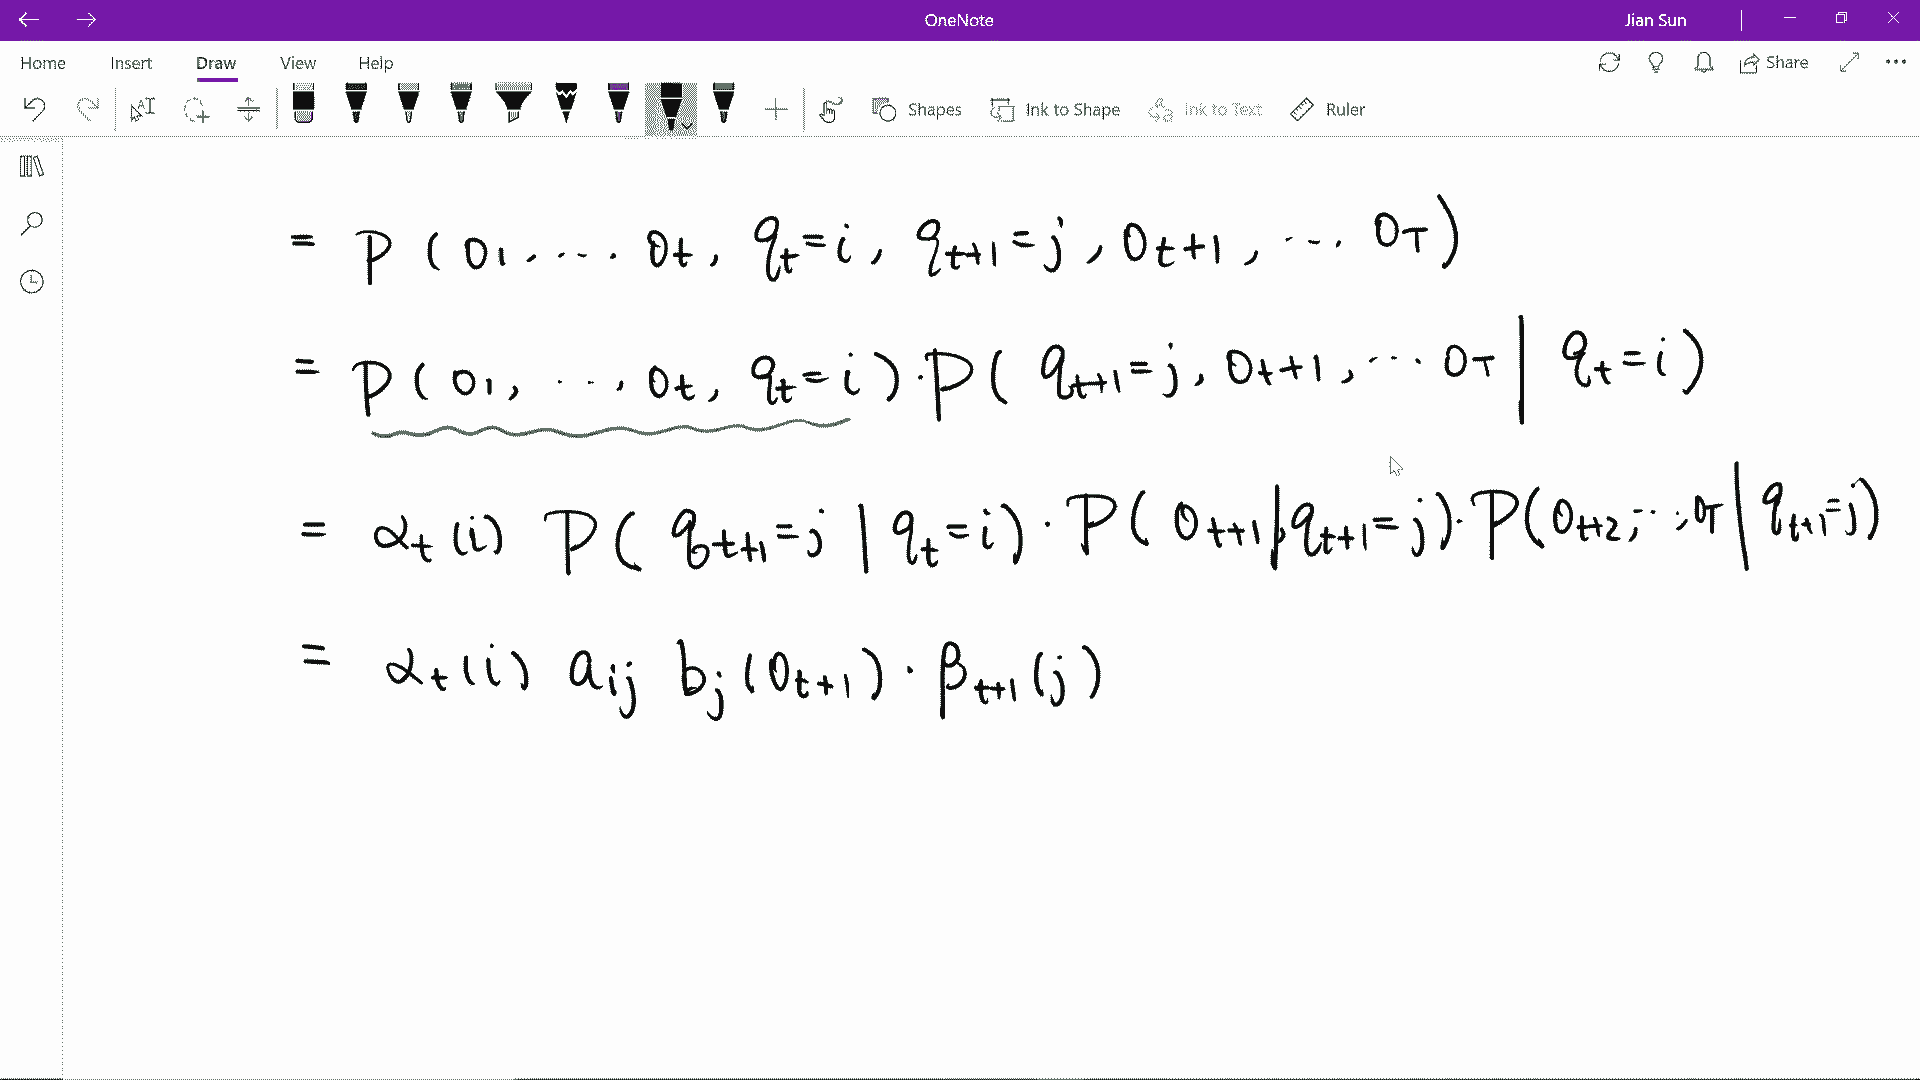 OneNote
Jian Sun
Home Insert Draw View Help
Share
Shapes Ink to Shape Ink to Text Ruler
= P ( O1, ... Ot, qt = i, qt+1 = j, Ot+1, ... OT )
= P ( O1, ..., Ot, qt = i ) · P ( qt+1 = j, Ot+1, ... OT | qt = i )
= αt (i) P ( qt+1 = j | qt = i ) · P ( Ot+1 | qt+1 = j ) · P ( Ot+2, ..., OT | qt+1 = j )
= αt (i) aij bj (Ot+1) · βt+1 (j)